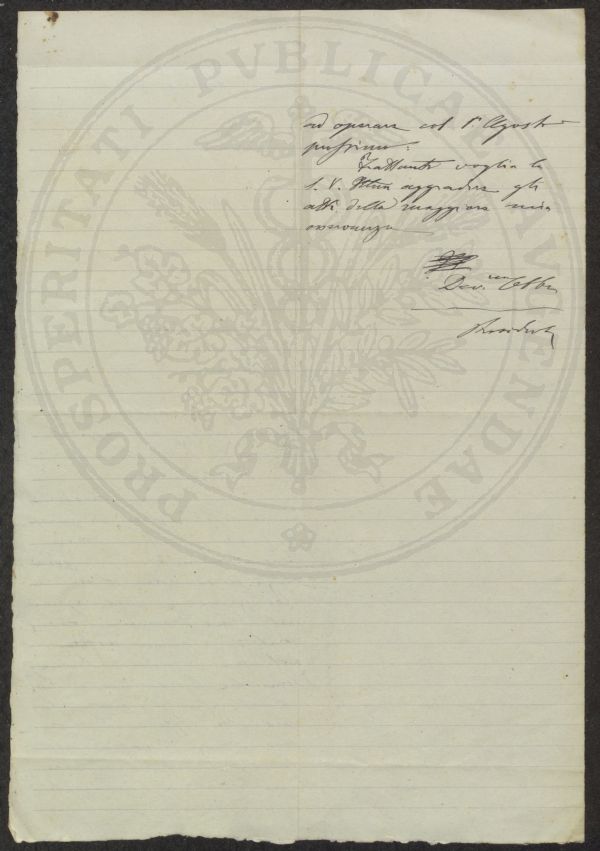 PROSPERITATI PVBLICAE AVGENDAE
ad operare col 1° Agosto
prossimo.
Frattanto voglia la
S. V. Ill.ma aggradire gli
atti della maggiore mia
osservanza
Dev.